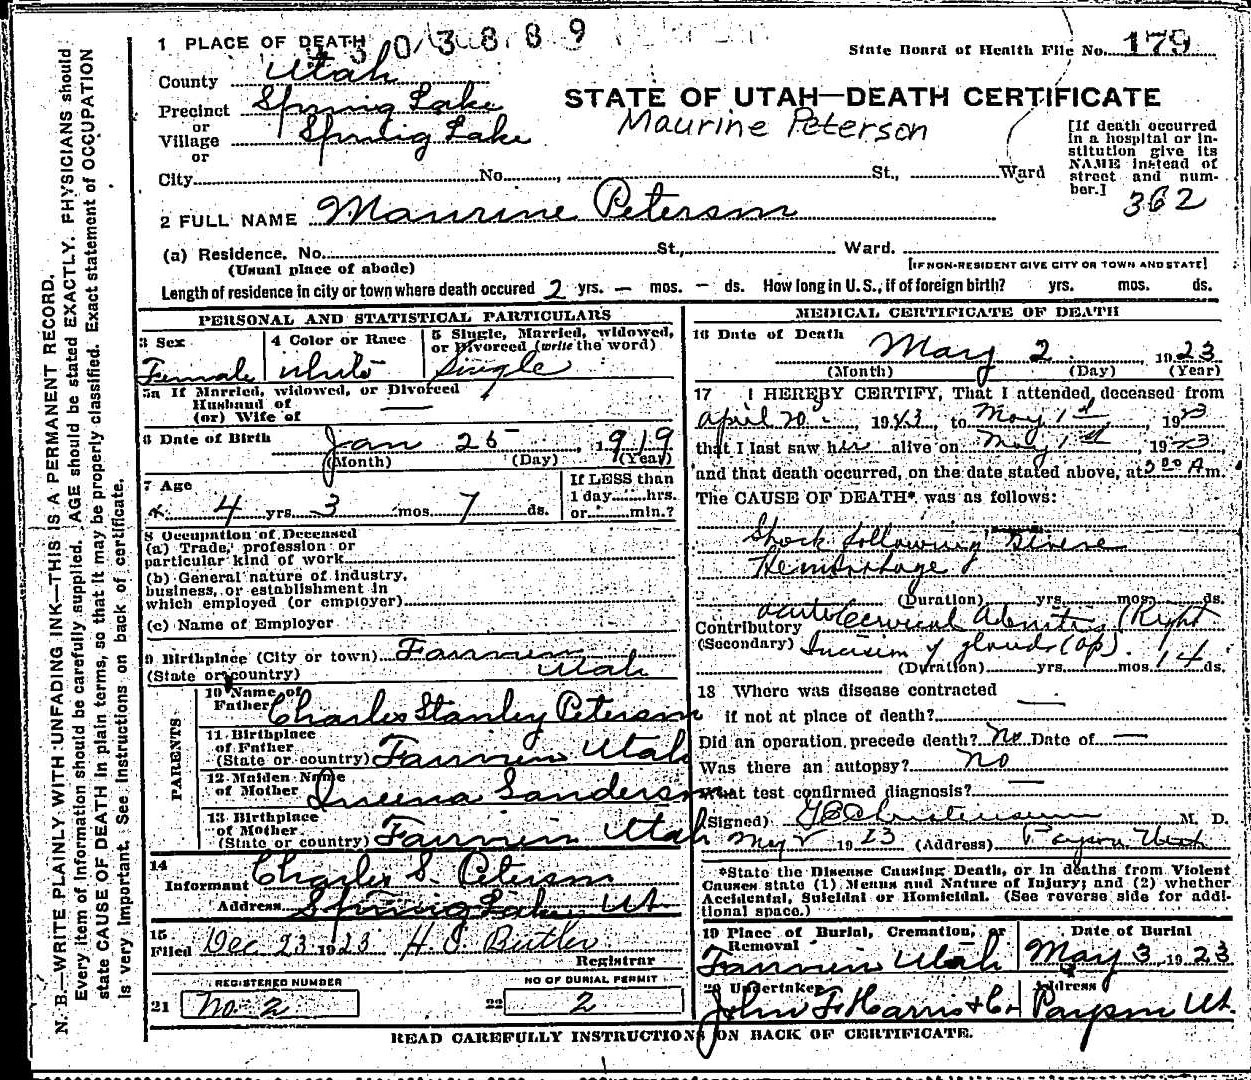 1 PLACE OF DEATH
303889
State Board of Health File No. 179
County Utah
Precinct Spring Lake
or
Village Spring Lake
or
City No. St., Ward
STATE OF UTAH—DEATH CERTIFICATE
Maurine Peterson
[If death occurred
in a hospital or in-
stitution give its
NAME instead of
street and num-
ber.]
362
2 FULL NAME Maurine Peterson
(a) Residence. No. St., Ward.
(Usual place of abode)
[IF NON-RESIDENT GIVE CITY OR TOWN AND STATE]
Length of residence in city or town where death occured 2 yrs. — mos. — ds. How long in U.S., if of foreign birth? yrs. mos. ds.
PERSONAL AND STATISTICAL PARTICULARS
3 Sex
Female
4 Color or Race
White
5 Single, Married, widowed,
or Divorced (write the word)
Single
5a If Married, widowed, or Divorced
Husband of
(or) Wife of —
6 Date of Birth Jan 25, 1919
(Month) (Day) (Year)
7 Age
4 yrs. 3 mos. 7 ds.
If LESS than
1 day hrs.
or min.?
8 Occupation of Deceased
(a) Trade, profession or
particular kind of work
(b) General nature of industry,
business, or establishment in
which employed (or employer)
(c) Name of Employer
9 Birthplace (City or town) Fairview
(State or country) Utah
PARENTS
10 Name of
Father Charles Stanley Peterson
11 Birthplace
of Father
(State or country) Fairview Utah
12 Maiden Name
of Mother Sanderson
13 Birthplace
of Mother
(State or country) Fairview Utah
14
Informant Charles S. Peterson
Address Spring Lake Ut.
15
Filed Dec 23 1923 H. C. Butler
Registrar
REGISTERED NUMBER
21 No. 2
NO OF BURIAL PERMIT
22 2
MEDICAL CERTIFICATE OF DEATH
16 Date of Death
May 2. 1923
(Month) (Day) (Year)
17 I HEREBY CERTIFY, That I attended deceased from
April 20, 1923 to May 1st, 1923
that I last saw her alive on May 1st 1923,
and that death occurred, on the date stated above, at A m.
The CAUSE OF DEATH* was as follows:
Shock following severe
Hemorrhage
(Duration) yrs. mos. ds.
Contributory acute Cervical Adenitis (Right
(Secondary) Incision of glands (op).
(Duration) yrs. mos. 14 ds.
18 Where was disease contracted
if not at place of death? —
Did an operation precede death? No Date of —
Was there an autopsy? No
What test confirmed diagnosis? —
(Signed) Christensen M. D.
May 2 1923 (Address) Payson Utah
*State the Disease Causing Death, or in deaths from Violent
Causes state (1) Means and Nature of Injury; and (2) whether
Accidental, Suicidal or Homicidal. (See reverse side for addi-
tional space.)
19 Place of Burial, Cremation, or
Removal
Fairview Utah
Date of Burial
May 3, 1923
20 Undertaker
John F Harris & Co
Address
Payson Ut.
READ CAREFULLY INSTRUCTIONS ON BACK OF CERTIFICATE.
N. B.—WRITE PLAINLY WITH UNFADING INK—THIS IS A PERMANENT RECORD.
Every item of information should be carefully supplied. AGE should be stated EXACTLY. PHYSICIANS should
state CAUSE OF DEATH in plain terms, so that it may be properly classified. Exact statement of OCCUPATION
is very important. See instructions on back of certificate.